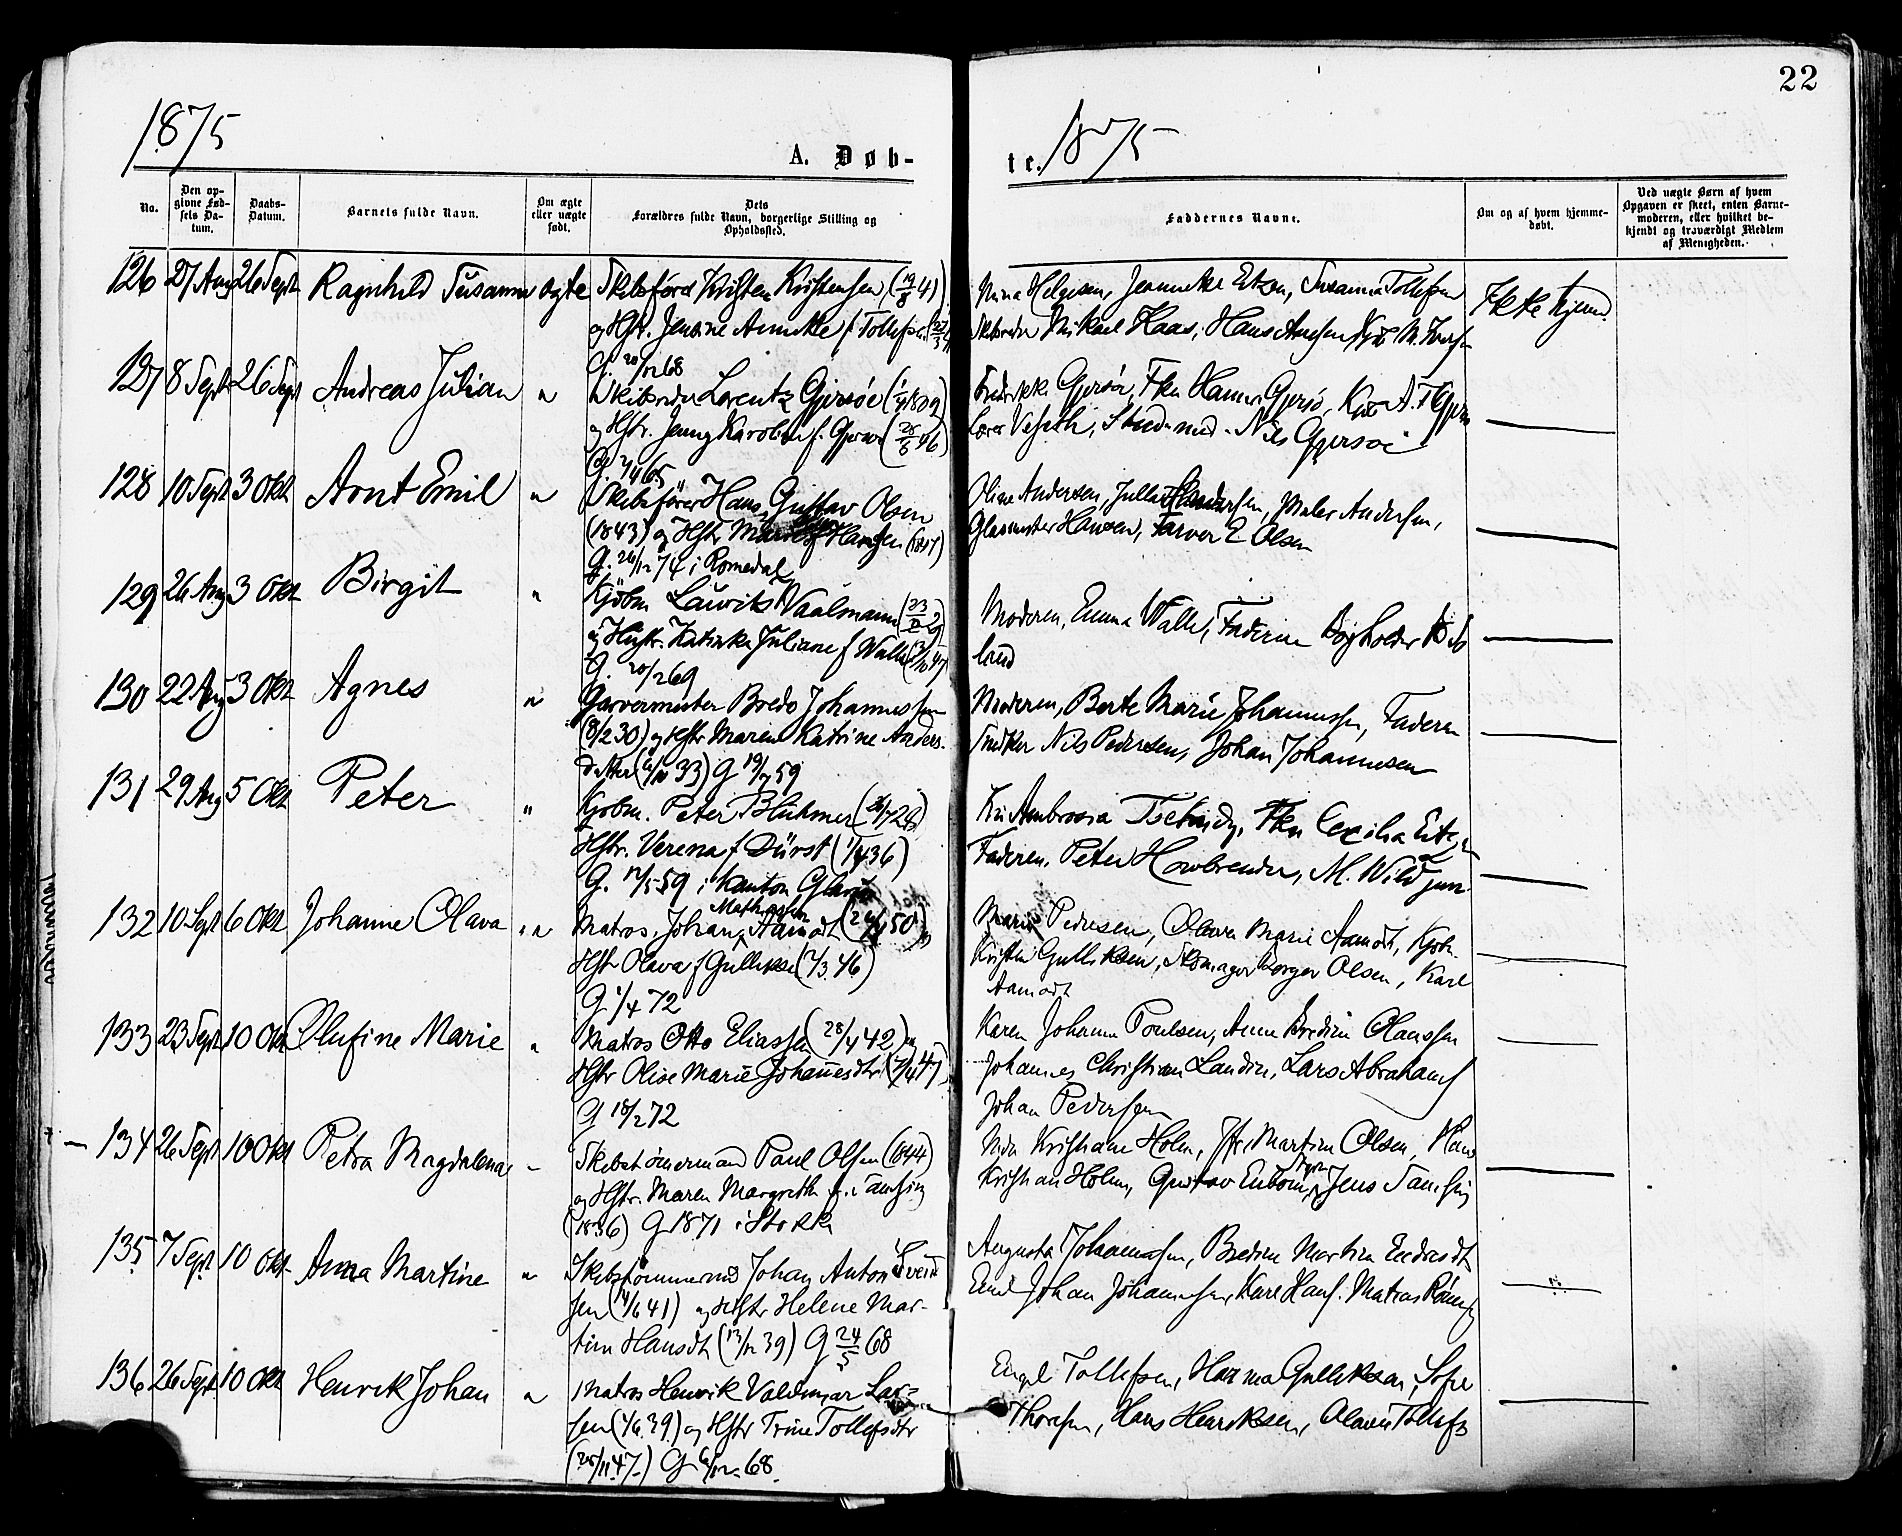 22
1875
1875
A. Døb-
te.
No.
Den op-
givne Fød-
sels Da-
tum.
Daabs-
Datum.
Barnets fulde Navn.
Om ægte
eller uægte
født.
Dets
Forældres fulde Navn, borgerlige Stilling og
Opholdssted.
Faddernes Navne.
Om og af hvem hjemme-
døbt.
Ved uægte Børn af hvem
Opgaven er skeet, enten Barne-
moderen, eller hvilket be-
kjendt og troværdigt Medlem
af Menigheden.
126 27 Aug 26 Sept Ragnhild Susanne ægte Skibsfører Kristen Kristensen (19/8 41)
og Hstr. Jensine Annette f Tollefsen
G. 20/12 68
Nina Helgesen, Jeanette Etzen, Susanna Tollefsen
Skibsreder Mikael Haas, Hans Arnesen, M.
Ikke hjemd.
127 8 Sept 26 Sept Andreas Julian " Skibsreder Lorentz Gjersøe
og Hstr. Jenny Karoline f. Gjersøe (25/5 46)
G. 65
Fredrikke Gjersøe, Fkn Hanna Gjersø, A. F Gjers
Lærer Veseth, Stud. med. Nils Gjersøe
128 10 Sept 3 Okt Arnt Emil " Skibsfører Hans Gustav Olsen
(1843) og Hstr Hansen
G. 26/12 74 i Romedal
Oline Andersen, Maler Andersen,
Glasmester Hansen, Farver E Olsen
129 26 Aug 3 Okt Birgit " Kjøbm Laurits Vaalmann
og Hustr. Katinka Juliane f Walle
G. 20/2 69
Moderen, Emma Walle, Faderen Bogholder
130 22 Aug 3 Okt Agnes " Garvermester Bredo Johannessen
(8/2 30) og Hstr Maren Katrine Anders-
datter 33) G 19/7 59
Moderen, Berte Marie Johannessen, Faderen
Snedker Nils Pedersen, Johan Johannesen
131 29 Aug 5 Okt Peter " Kjøbm. Peter Blühmer
Hstr. Verena f Dürst (1/4 36)
G. 17/5 59 i Kanton Glarus
Ambrosia Tschudy, Fkn Cecilia
Faderen, Peter M. Wild jun
132 10 Sept 6 Okt Johanne Olava " Matros Johan Mathiassen Aamodt
Hstr Olava f Gulliksen (2/3 46)
G 1/4 72
Marie Pedersen, Olava Marie Aamodt, Kjøb.
Kristen Gulliksen, Skomager Borger Olsen, Karl
Aamodt
133 23 Sept 10 Okt Olufine Marie " Matros Otto Eliassen (28/4 42) og
Hstr Olive Marie Johannesdtr
G 18/2 72
Karen Johanne Poulsen, Anne Bredine Olaussen
Johannes Christian Landin, Lars Abrahams
Johan Pedersen
134 26 Sept 10 Okt Petra Magdalena " Skibstømermand Paul Olsen (1844)
og Hstr. Maren Margrethe
(1836) G 1871 i Stokke
Kristiane Holm, Martine Olsen, Hans
Kristian Holm, Gustav Jens
135 7 Sept 10 Okt Anna Martine " Skibstømmermd Johan Anton Svend
sen 41) og Hstr Helene Mar-
tine Hansdt (13/12 39) G 24/5 68
Augusta Johannessen, Bredine Martine
Emil Johan Johannessen, Karl Hans. Matros
136 26 Sept 10 Okt Henrik Johan " Matros Henrik Valdemar Lar-
sen 39) og Hstr Trine Tollefsdtr
(25/11 47) G 6/12 68
Engel Tollefsen, Hanna Gulliksen, Sofie
Thoresen, Hans Henriksen, Olaves Tollefs